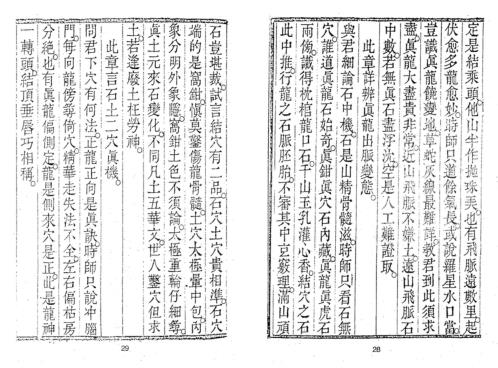 定是結乘頭他山牛作拋珠美也有飛脈遠數里起
伏愈多龍愈妙時師只道條氣長或說羅星水口當
豈識眞龍饒變地草蛇灰線最離詳教君到此須求
盡眞龍大盡貴非常近山飛脈不嫌土遠山飛脈石
中數若無眞石盡浮沈空是人工難證取
此章詳辨眞龍出脈變態
與君細論石中機石是山精骨髓滋時師只看石無
穴誰道眞龍石始奇眞鉗眞穴石內藏眞龍眞虎石
兩傍識得枕棺龍口石千山玉乳灌心香結穴之石
此中推行龍之石脈胚胎不審其中豆竅理滿山頑
28
石豈堪裁試言結穴有二品石穴土穴貴相準石穴
端的是窩鉗愼莫鑿傷龍骨髓土穴太極暈中包內
象分明外象隱窩鉗土色不須論太極重輪仔細尋
眞土元來石變化不同凡土五華文世人鑿穴但求
土若逢廢土枉勞神
此章言石土二穴眞機
問君下穴有何法正龍正向是眞訣時師只說冲腦
門每向龍傍尋倚穴精華走失法不全左右偏枯房
分絶也有眞龍偏側定龍是側來穴是正此是龍神
一轉頭結頂垂唇巧相稱
29